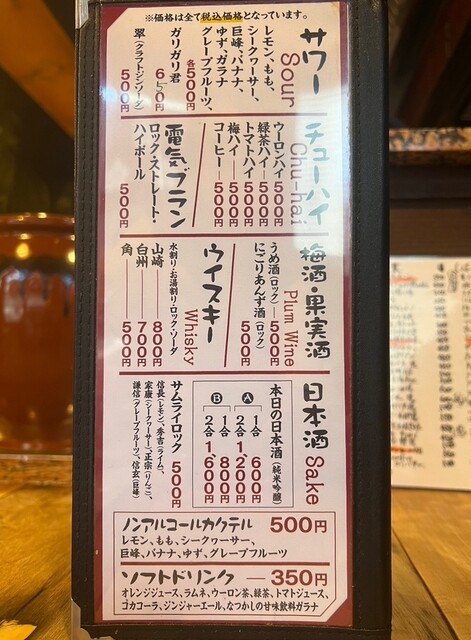 ※価格は全て税込価格となっています。
サワー
Sour
レモン、もも、
シークヮーサー、
巨峰、バナナ、
ゆず、ガラナ
グレープフルーツ、
各500円
ガリガリ君
650円
翠(クラフトジンソーダ)
500円
チューハイ
Chu-hai
ウーロンハイ 500円
緑茶ハイ 500円
トマトハイ 500円
梅ハイ 500円
コーヒー 500円
電気ブラン
ロック・ストレート・
ハイボール 500円
梅酒・果実酒
Plum Wine
うめ酒(ロック) 500円
にごりあんず酒(ロック)
500円
ウイスキー
Whisky
水割り・お湯割り・ロック・ソーダ
山崎 800円
白州 700円
角 500円
日本酒 Sake
本日の日本酒(純米吟醸)
A 1合 600円
2合 1,200円
B 1合 800円
2合 1,600円
サムライロック 500円
信長(レモン)、秀吉(ライム)、
家康(シークヮーサー)、正宗(りんご)、
謙信(グレープフルーツ)、信玄(巨峰)
ノンアルコールカクテル 500円
レモン、もも、シークヮーサー、
巨峰、バナナ、ゆず、グレープフルーツ
ソフトドリンク 350円
オレンジジュース、ラムネ、ウーロン茶、緑茶、トマトジュース、
コカコーラ、ジンジャーエール、なつかしの甘味飲料ガラナ